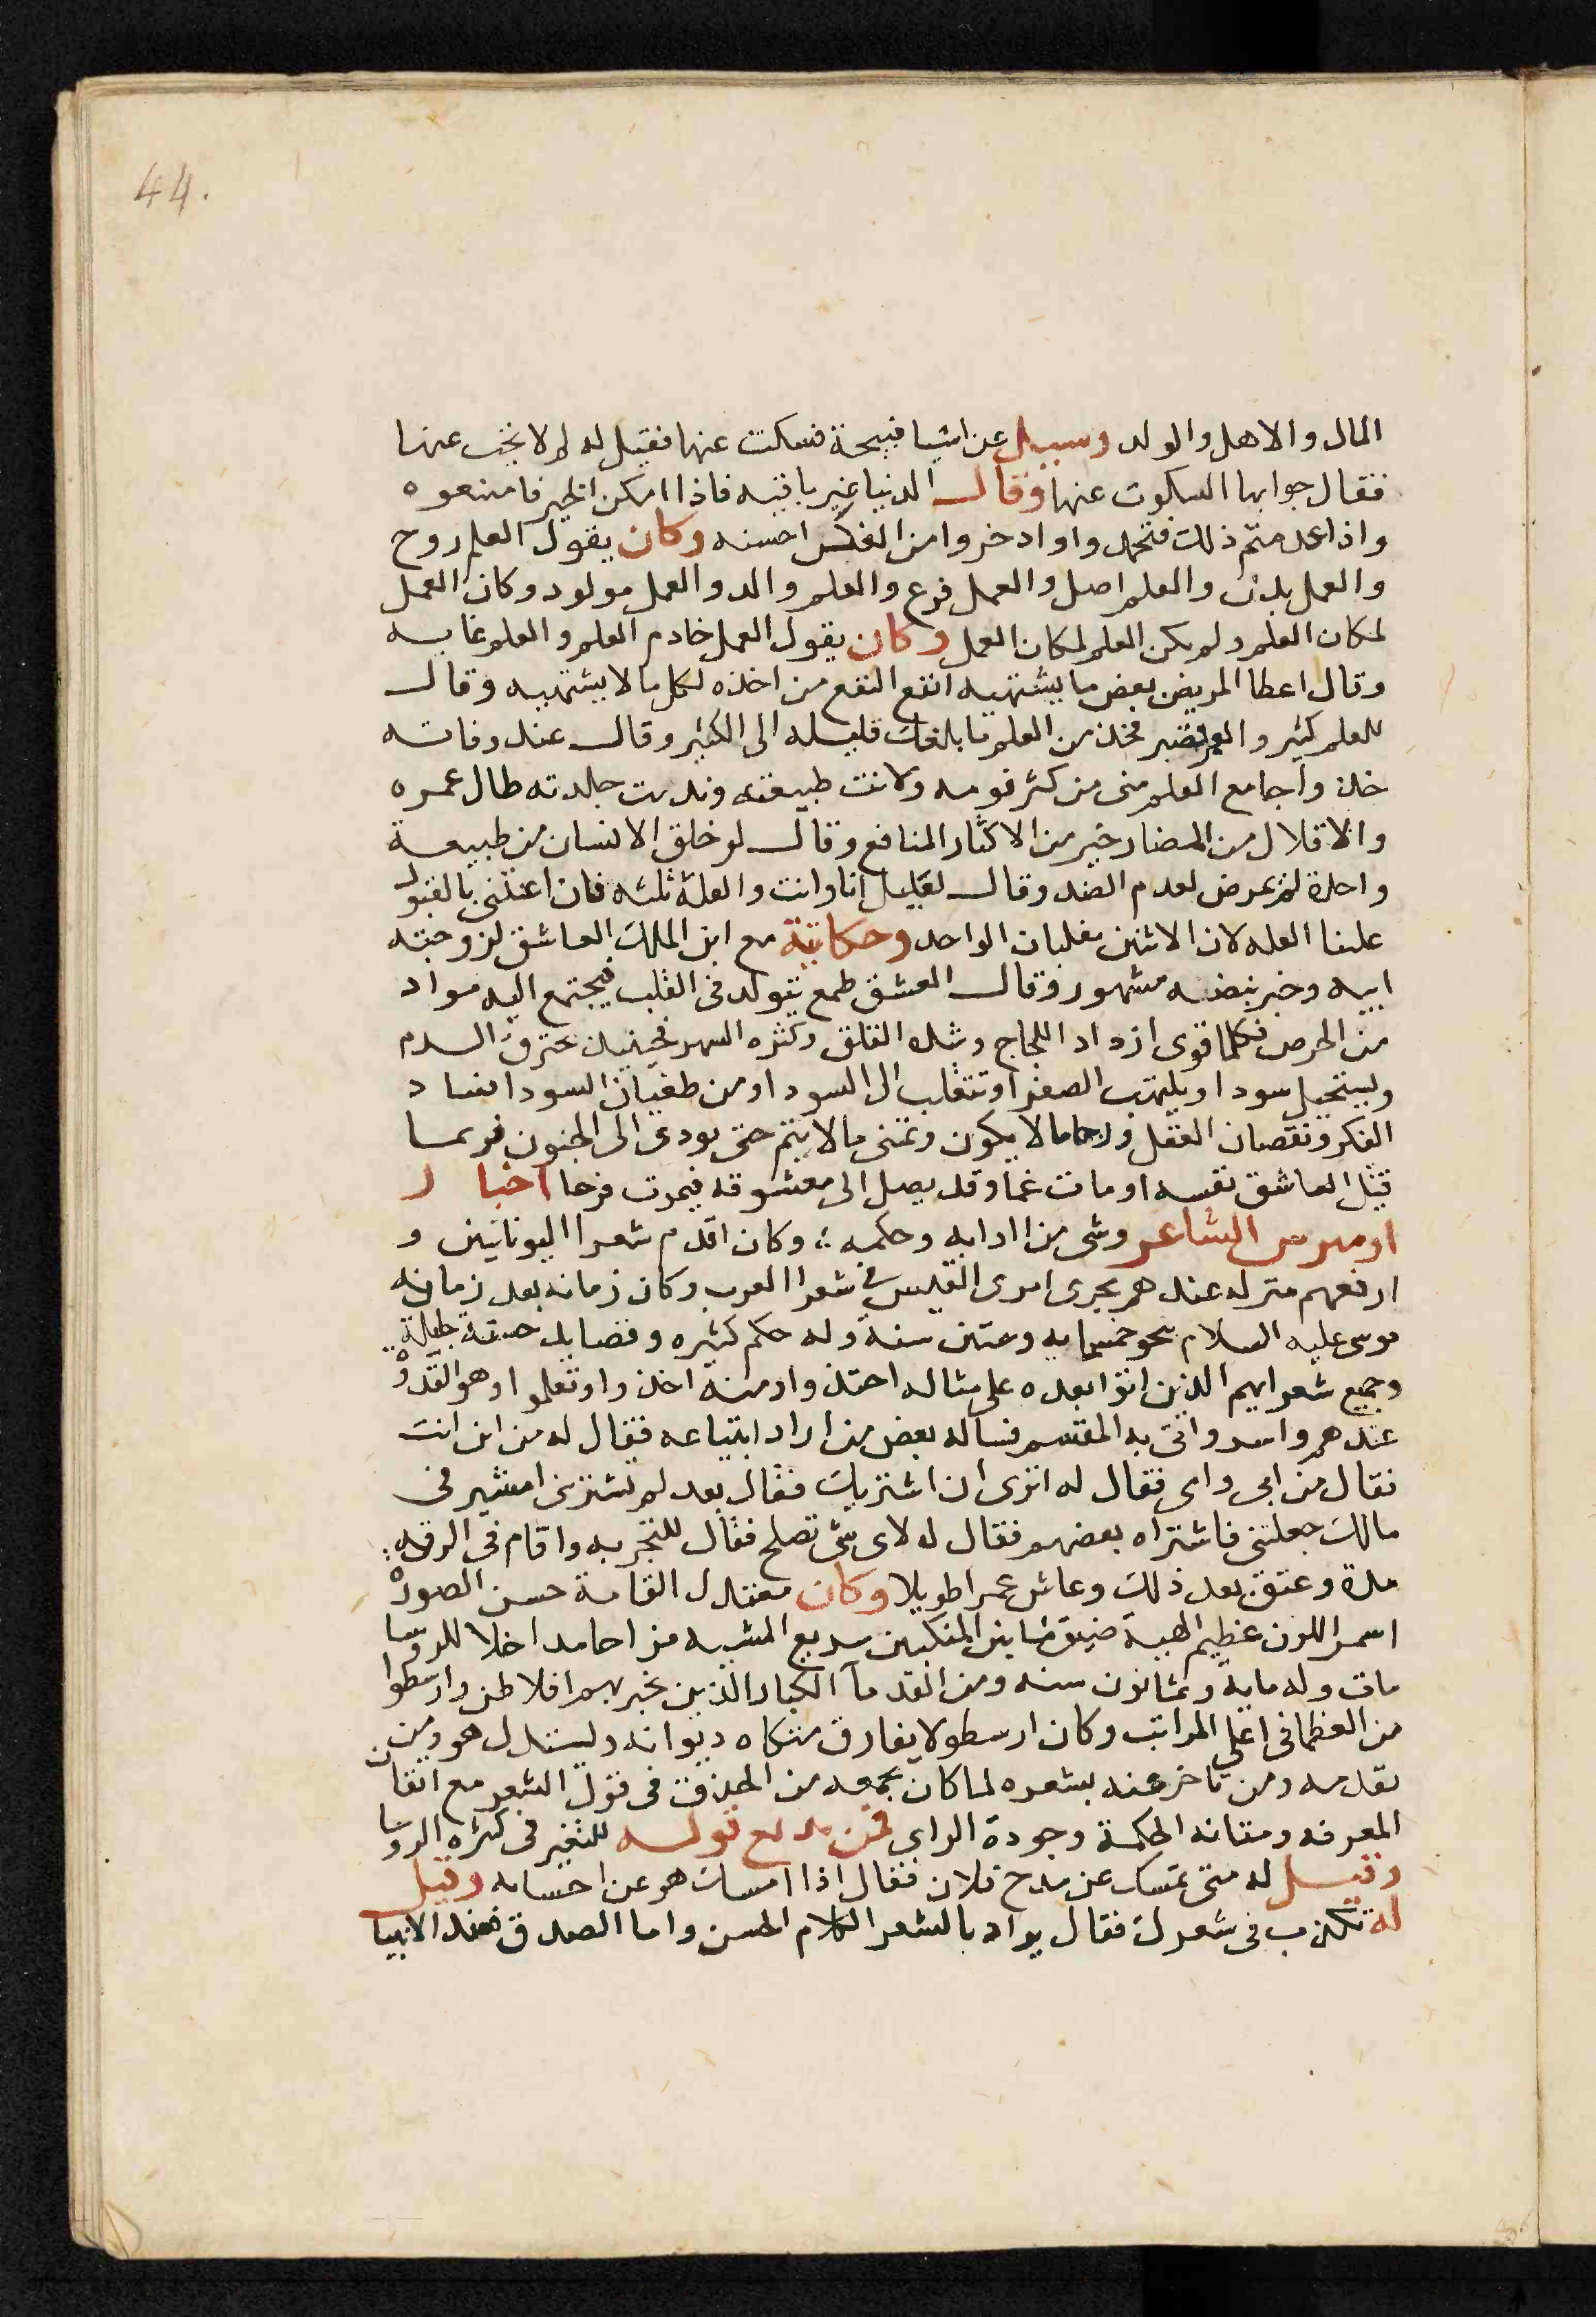 44.
المال والاهل والولد وسيل عن اشيا قبيحة فسكت عنها فقيل له لم لا تجب عنها
فقال جوابها السكوت عنها وقال الدنيا غير باقيه فاذا امكن الخير فاصنعوه
واذا عدمتم ذلك فتحمدوا وادخروا من الفكر احسنه وكان يقول العلم روح
والعمل بدن والعلم اصل والعمل فرع والعلم والد والعمل مولود وكان العمل
لمكان العلم ولم يكن العلم لمكان العمل وكان يقول العمل خادم العلم والعلم غايه
وقال اعطا المريض بعض ما يشتهيه انفع النفع من اخذه لكل ما لا يشتهيه وقال
للعلم كثير والعمر قصير فخذ من العلم ما بلغك قليله الى الكثير وقال عند وفاته
خذوا جامع العلم منى من كثر نومه ولانت طبيعته ونديت جلدته طال عمره
والاقلال من المضار خير من الاكثار المنافع وقال لو خلق الانسان من طبيعة
واحدة لم يمرض لعدم الضد وقال لعليل انا وانت والعلة ثلثه فان اعنتنى بالقبول
علينا العله لان الاثنين يغلبان الواحد وحكايته مع ابن الملك العاشق لزوجته
ابيه وخبر نبضه مشهور وقال العشق طمع يتولد فى القلب فيجتمع اليه مواد
من الحرص فكلما قوى ازداد اللجاج وشدة القلق وكثره السهر فحينيذ يحترق الدم
ويستحيل سودا ويلتهب الصفرا وتنقلب الى السودا ومن طغيان السودا فساد
الفكر ونقصان العقل ورجا ما لا يكون وتمنى ما لا يتم حتى يودى الى الجنون فربما
قتل العاشق نفسه او مات غما وقد يصل الى معشوقه فيموت فرحا اخبار
اوميرس الشاعر وشى من ادابه وحكمه وكان اقدم شعرا اليونانيين و
ارفعهم منزله عندهم يجرى امرى القيس فى شعرا العرب وكان زمانه بعد زمانه
موسى عليه السلام بنحو خمسمايه وستين سنة وله حكم كثيره وقصايد حسنة جليلة
وجميع شعرايهم الذين اتوا بعده على مثاله احتذوا ومنه اخذوا وتعلموا وهو القدوة
عندهم واسر واتى به المقسم فساله بعض من اراد ابتياعه فقال له من اين انت
فقال من ابى وامى فقال له اترى ان اشتريك فقال بعد لم تشترنى امشير فى
مالك جعلتنى فاشتراه بعضهم فقال له لاى شى تصلح فقال للتجربه واقام فى الرق
مدة وعتق بعد ذلك وعاش عمرا طويلا وكان معتدل القامة حسن الصورة
اسمر اللون عظيم الهيبة ضيق ما بين المنكبين سريع المشيه مزاحا مداخلا للروسا
مات وله ماية وثمانون سنه ومن القدمآ الكبار الذين يخبر بهم افلاطن وارسطوا
من العظما فى اعلى المراتب وكان ارسطو لا يفارق متكاه ديوانه وليستدل هو ومن
تقدمه ومن تاخر عنه بشعره لما كان يجمعه من الحذق فى قول الشعر مع اتقان
المعرفه ومتانه الحكمة وجودة الراى فمن بديع قوله للتغير فى كثره الروسا
وقيل له متى تمسك عن مدح فلان فقال اذا امسك هو عن احسانه وقيل
له تكذب فى شعرك فقال يراد بالشعر الكلام الحسن واما الصدق فعند الانبيا